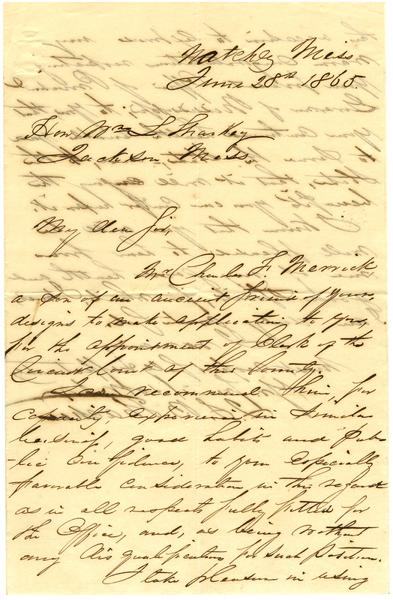 Natchez Miss
June 28th 1865.
Hon Wm L Sharkey
Jackson Miss.
My dear Sir,
Mr Charles F. Merrick
a son of an ancient friend of yours,
designs to make application to you,
for the appointment of Clerk of the
Circuit Court of this County.
I can recommend him, for
capacity, experience in similar
business, good habits and pub-
lic confidence, to your especially
favorable consideration in this regard
as in all respects fully fitted for
the Office, and, as being without
any disqualification for such position.
I take pleasure in using